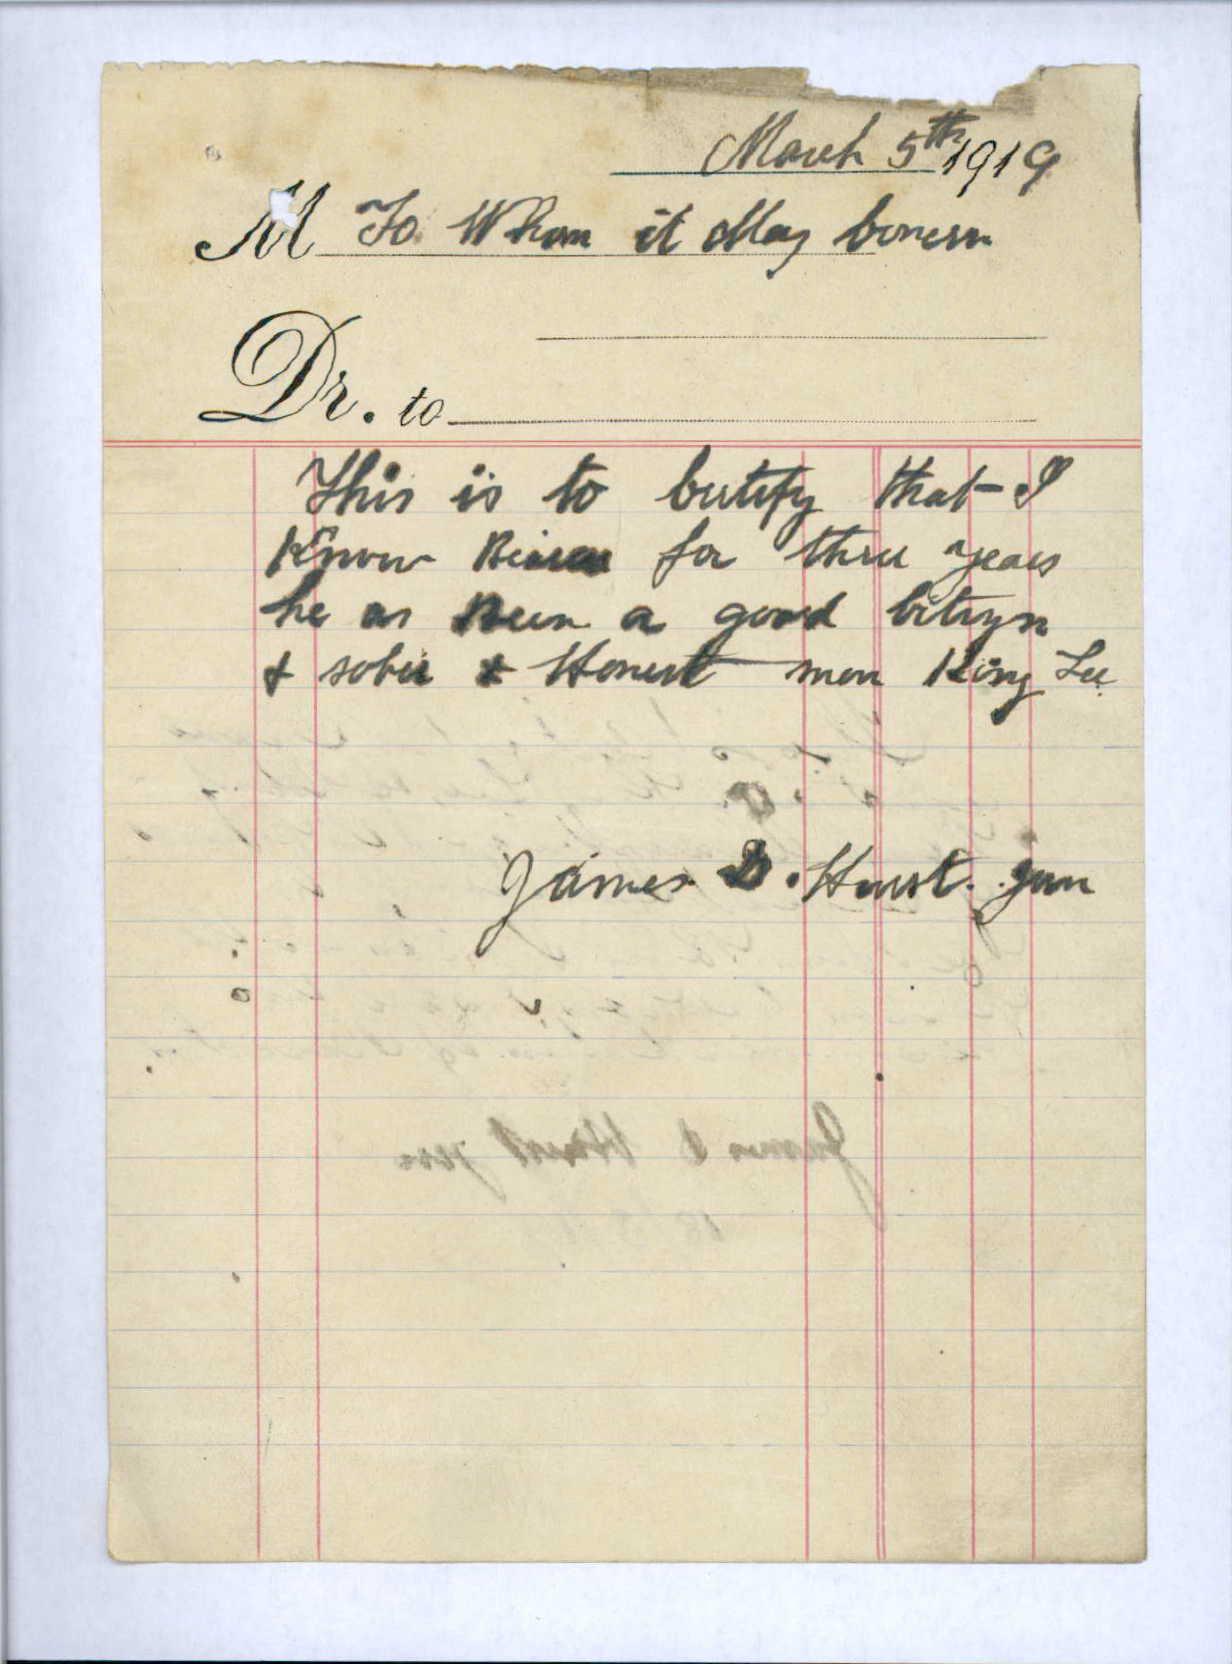 March 5th 1919
M To Whom it May Concern
Dr. to
This is to Certify that I
Know for three years
he as Been a good Citizen
& sober & Honest man King Lee
James D. Hurst. Jun